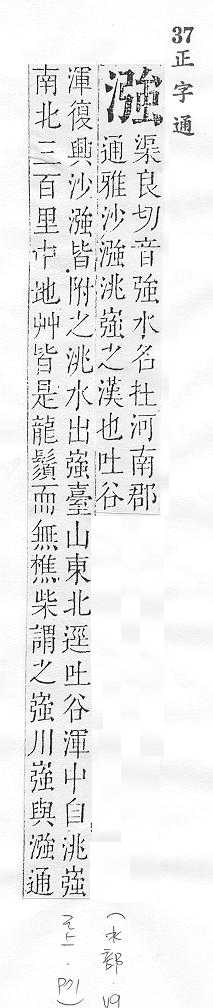 37 正字通
漒
渠良切音強水名在河南郡
通雅沙漒洮嵹之漢也吐谷
渾復興沙漒皆附之洮水出嵹臺山東北逕吐谷渾中自洮嵹
南北三百里中地艸皆是龍鬚而無樵柴謂之嵹川嵹與漒通
(水部·